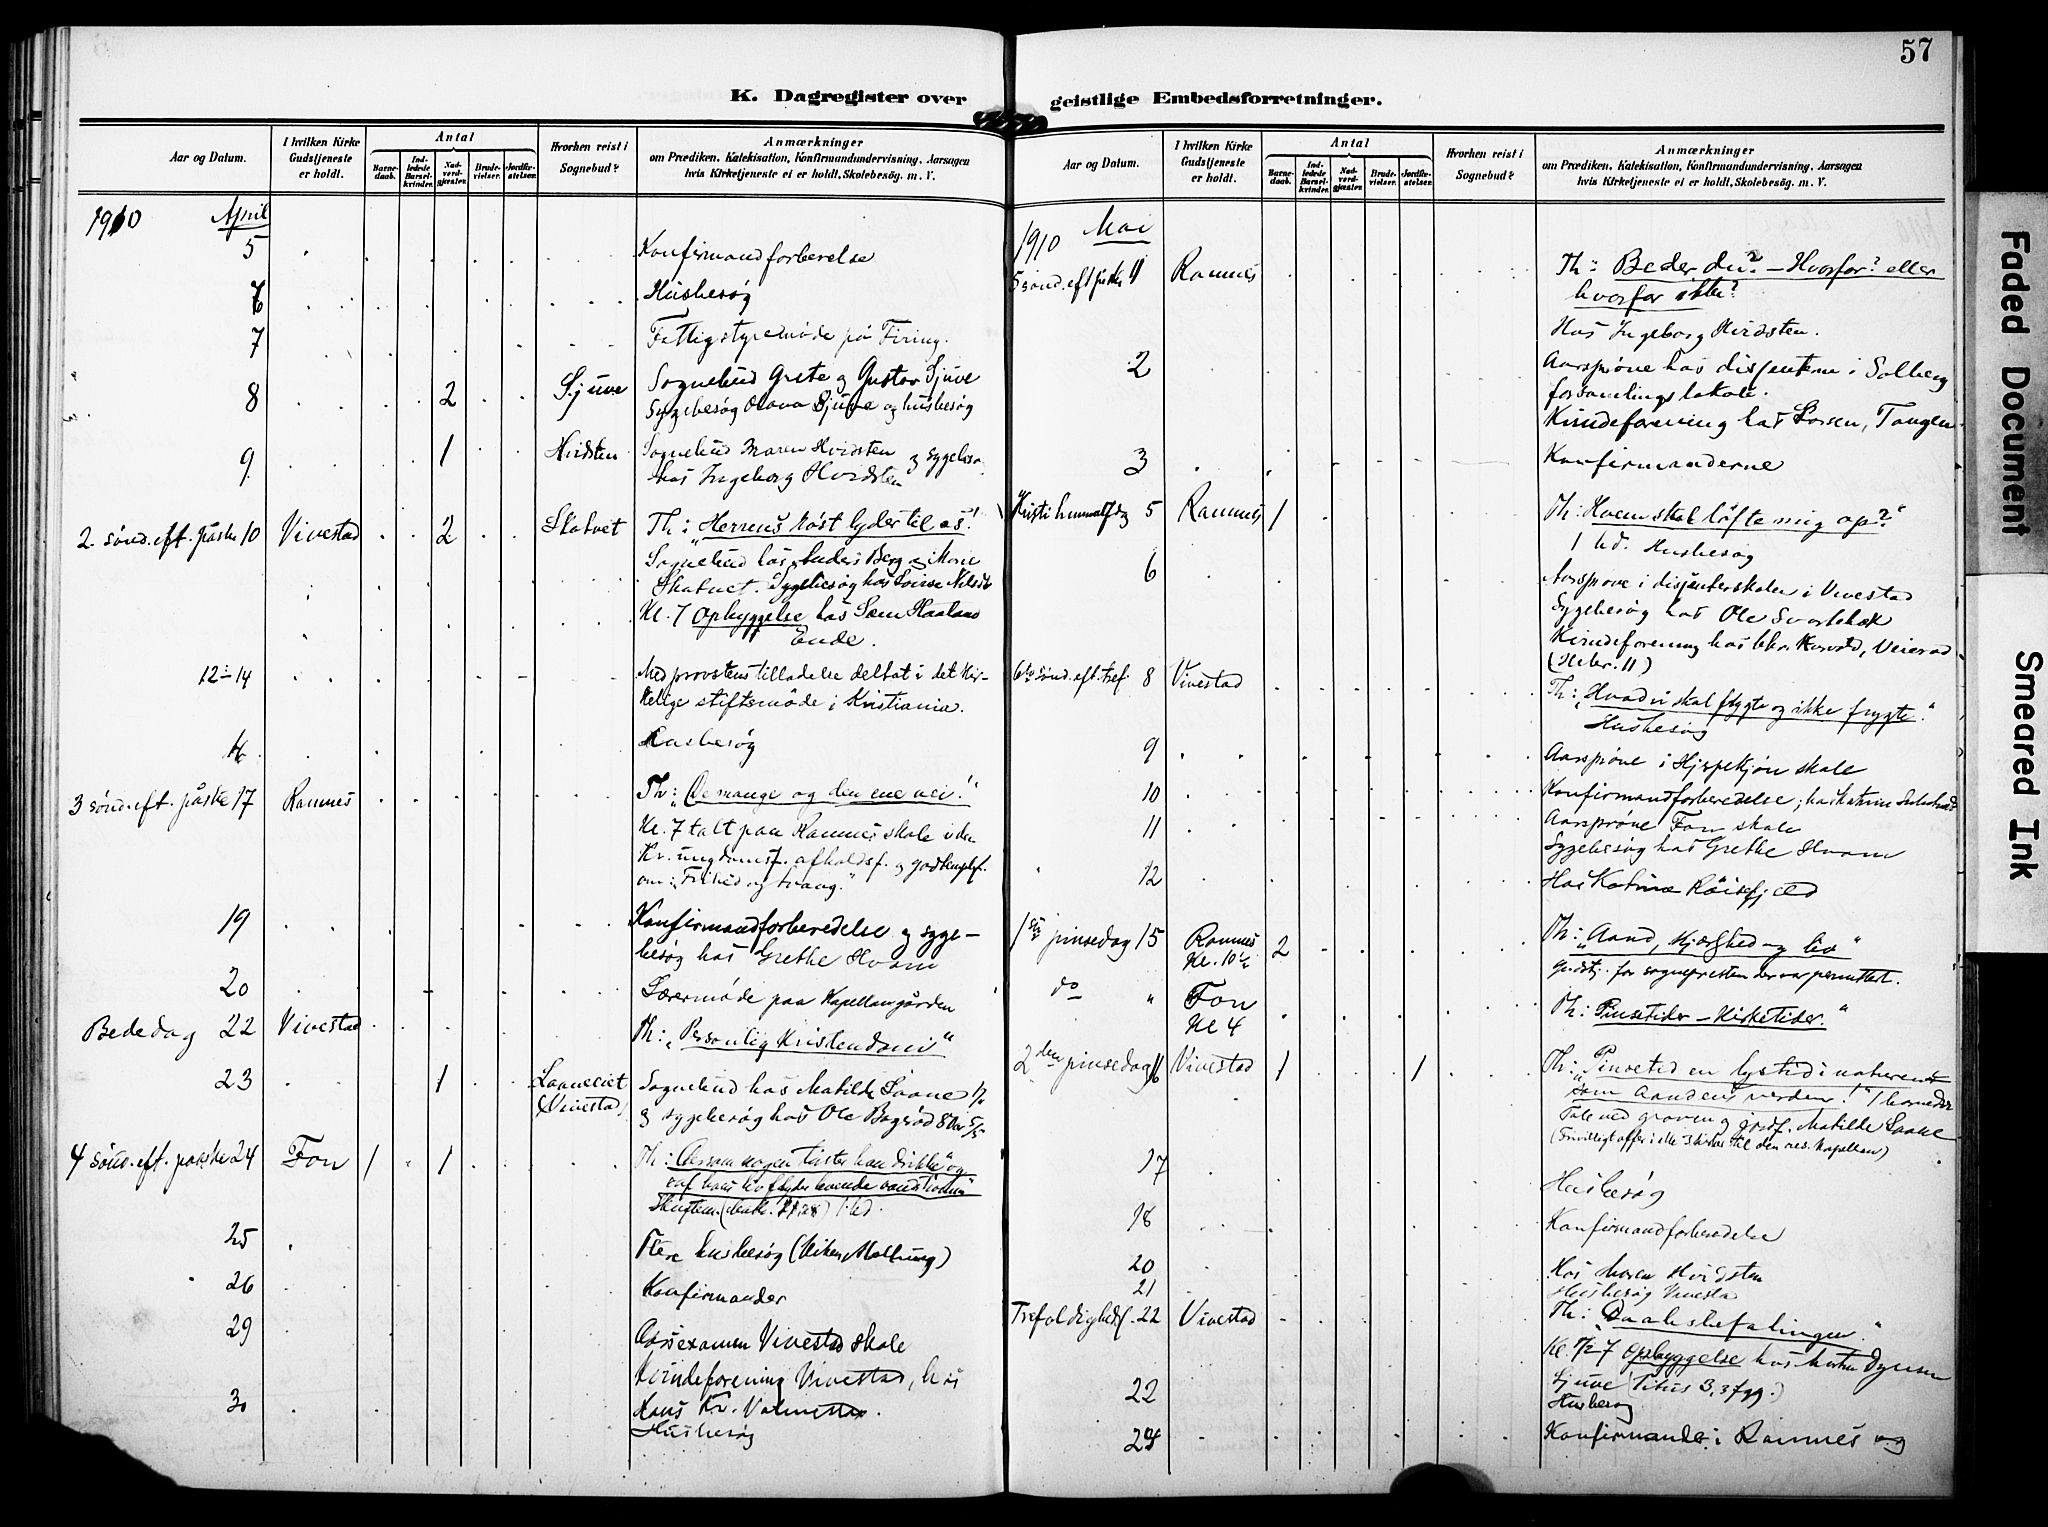 57
K. Dagregister over geistlige Embedsforretninger.
Aar og Datum.
I hvilken Kirke Gudstjeneste er holdt.
Antal
Barne-daab.
Ind-ledede Barsel-kvinder.
Nad-verd-gjæster.
Brude-vielser.
Jordfæ-stelser.
Hvorhen reist i Sognebud?
Anmærkninger
om Prædiken, Katekisation, Konfirmandundervisning, Aarsagen
hvis Kirketjeneste ei er holdt, Skolebesøg. m. V.
1910 April
5 Konfirmandforberelse
6 Husbesøg
7 Fattigstyremøde på Firing.
8 2 Sjuve Sognebud Grete og Gustav Sjuve
Sygebesøg Olava Sjuve og husbesøg
9 1 Hvidsten Sognebud Maren Hvidsten og sygebesø
hos Ingeborg Hvidsten
2. sønd. eft. påske 10 Vivestad 2 Skatvet Th: "Herrens røst lyder til os!"
Sognebud hos Anders Berg og Marie
Skatvet. Sygebesøg hos Lovise
Kl. 7 Opbyggelse hos Sem Haaland
Ende.
12-14 Med provstens tilladelse deltat i det kir-
kelige stiftsmøde i Kristiania.
16 Husbesøg
3 sønd. eft. påske 17 Ramnes Th: "De mange og den ene vei!"
Kl. 7 talt paa Ramnes skole i den
kr. ungdomsf. afholdsf. og godtemplf.
om: "Frihed og tvang."
19 Konfirmandforberedelse og syge-
besøg hos Grethe Hvam
20 Lærermøde paa Kapellangården
Bededag 22 Vivestad Th: "Personlig Kristendom"
23 1 Laaneeiet Sognebud hos Matilde Laane
(Vivestad) og sygebesøg hos Ole Bogsrød
4 sønd. eft. paaske 24 Fon 1 1 Th: "Dersom nogen tørster han drikke" og
"af hans liv flyder levende vandstrømme"
25 Flere husbesøg
26 Konfirmander
29 Aarsexamen Vivestad skole
Kvindeforening Vivestad, hos
30 Hans Kr. Valmestad.
Husbesøg
Aar og Datum.
I hvilken Kirke Gudstjeneste er holdt.
Antal
Barne-daab.
Ind-ledede Barsel-kvinder.
Nad-verd-gjæster.
Brude-vielser.
Jordfæ-stelser.
Hvorhen reist i Sognebud?
Anmærkninger
om Prædiken, Katekisation, Konfirmandundervisning, Aarsagen
hvis Kirketjeneste ei er holdt, Skolebesøg. m. V.
1910 Mai
5 sønd. eft påske 1 Ramnes Th: Beder du? - Hvorfor? eller
hvorfor ikke?
Hos Ingeborg Hvidsten.
2 Aarsprøve hos disjenterne i Solberg
forsamlingslokale.
Kvindeforening hos Larsen, Tangen
3 Konfirmanderne
Kristi himmelfdg 5 Ramnes 1 Th: "Hvem skal løfte mig op?"
Husbesøg
6 Aarsprøve i disjenterskolen i Vivestad
Sygebesøg hos Ole Svartebæk
Kvindeforening hos
(Hebr. 11)
6te sønd. eft. 8 Vivestad Th: "Hvad vi skal frygte og ikke frygte."
Husbesøg
9 Aarsprøve i Hjerpekjøn skole
10 Konfirmandforberedelse; hos Katrine
11 Aarsprøve Fon skole
Sygebesøg hos Grethe Hvam
12 Hos Katrine Røisfjeld
1ste pinsedag 15 Ramnes 2 Th: "Aand, kjærlighed og liv"
Kl. 10½ Gudstj. for sognepresten der var permittert.
do " Fon Th: "Pinsetider - Kirketider."
Kl 4
2den pinsedag 16 Vivestad 1 1 Th: "Pinsetid en lystid i naturens
som Aandens verden!"
Tale ved graven og jordf. Matilde Laane
(Frivilligt offer i alle 3 kirker til den res. kapellan)
17 Husbesøg
18 Konfirmandforberedelse
20 Hos Maren Hvidsten
21 Husbesøg Vivestad
Trefoldighedf. 22 Vivestad Th: "Daabsbefalingen."
Kl. ½ 7 Opbyggelse hos
22 Sjuve (Titus 3, 3 fgg.)
Husbesøg
24 Konfirmander i Ramnes og
Faded Document
Smeared Ink